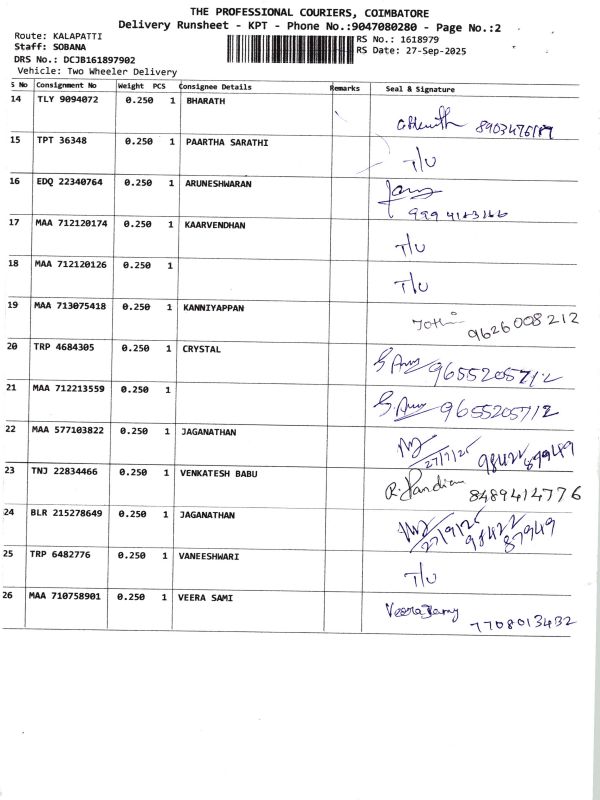 THE PROFESSIONAL COURIERS, COIMBATORE
Delivery Runsheet - KPT - Phone No.:9047080280 - Page No.:2
Route: KALAPATTI
RS No.: 1618979
Staff: SOBANA
RS Date: 27-Sep-2025
DRS No.: DCJB161897902
Vehicle: Two Wheeler Delivery
S No Consignment No Weight PCS Consignee Details Remarks Seal & Signature
14 TLY 9094072 0.250 1 BHARATH
15 TPT 36348 0.250 1 PAARTHA SARATHI
T/U
16 EDQ 22340764 0.250 1 ARUNESHWARAN
17 MAA 712120174 0.250 1 KAARVENDHAN
T/U
18 MAA 712120126 0.250 1
T/U
19 MAA 713075418 0.250 1 KANNIYAPPAN
9626008212
20 TRP 4684305 0.250 1 CRYSTAL
9655205712
21 MAA 712213559 0.250 1
9655205712
22 MAA 577103822 0.250 1 JAGANATHAN
23 TNJ 22834466 0.250 1 VENKATESH BABU
R. Pandian 8489414776
24 BLR 215278649 0.250 1 JAGANATHAN
27/9/25 98422 87949
25 TRP 6482776 0.250 1 VANEESHWARI
T/U
26 MAA 710758901 0.250 1 VEERA SAMI
7708013432